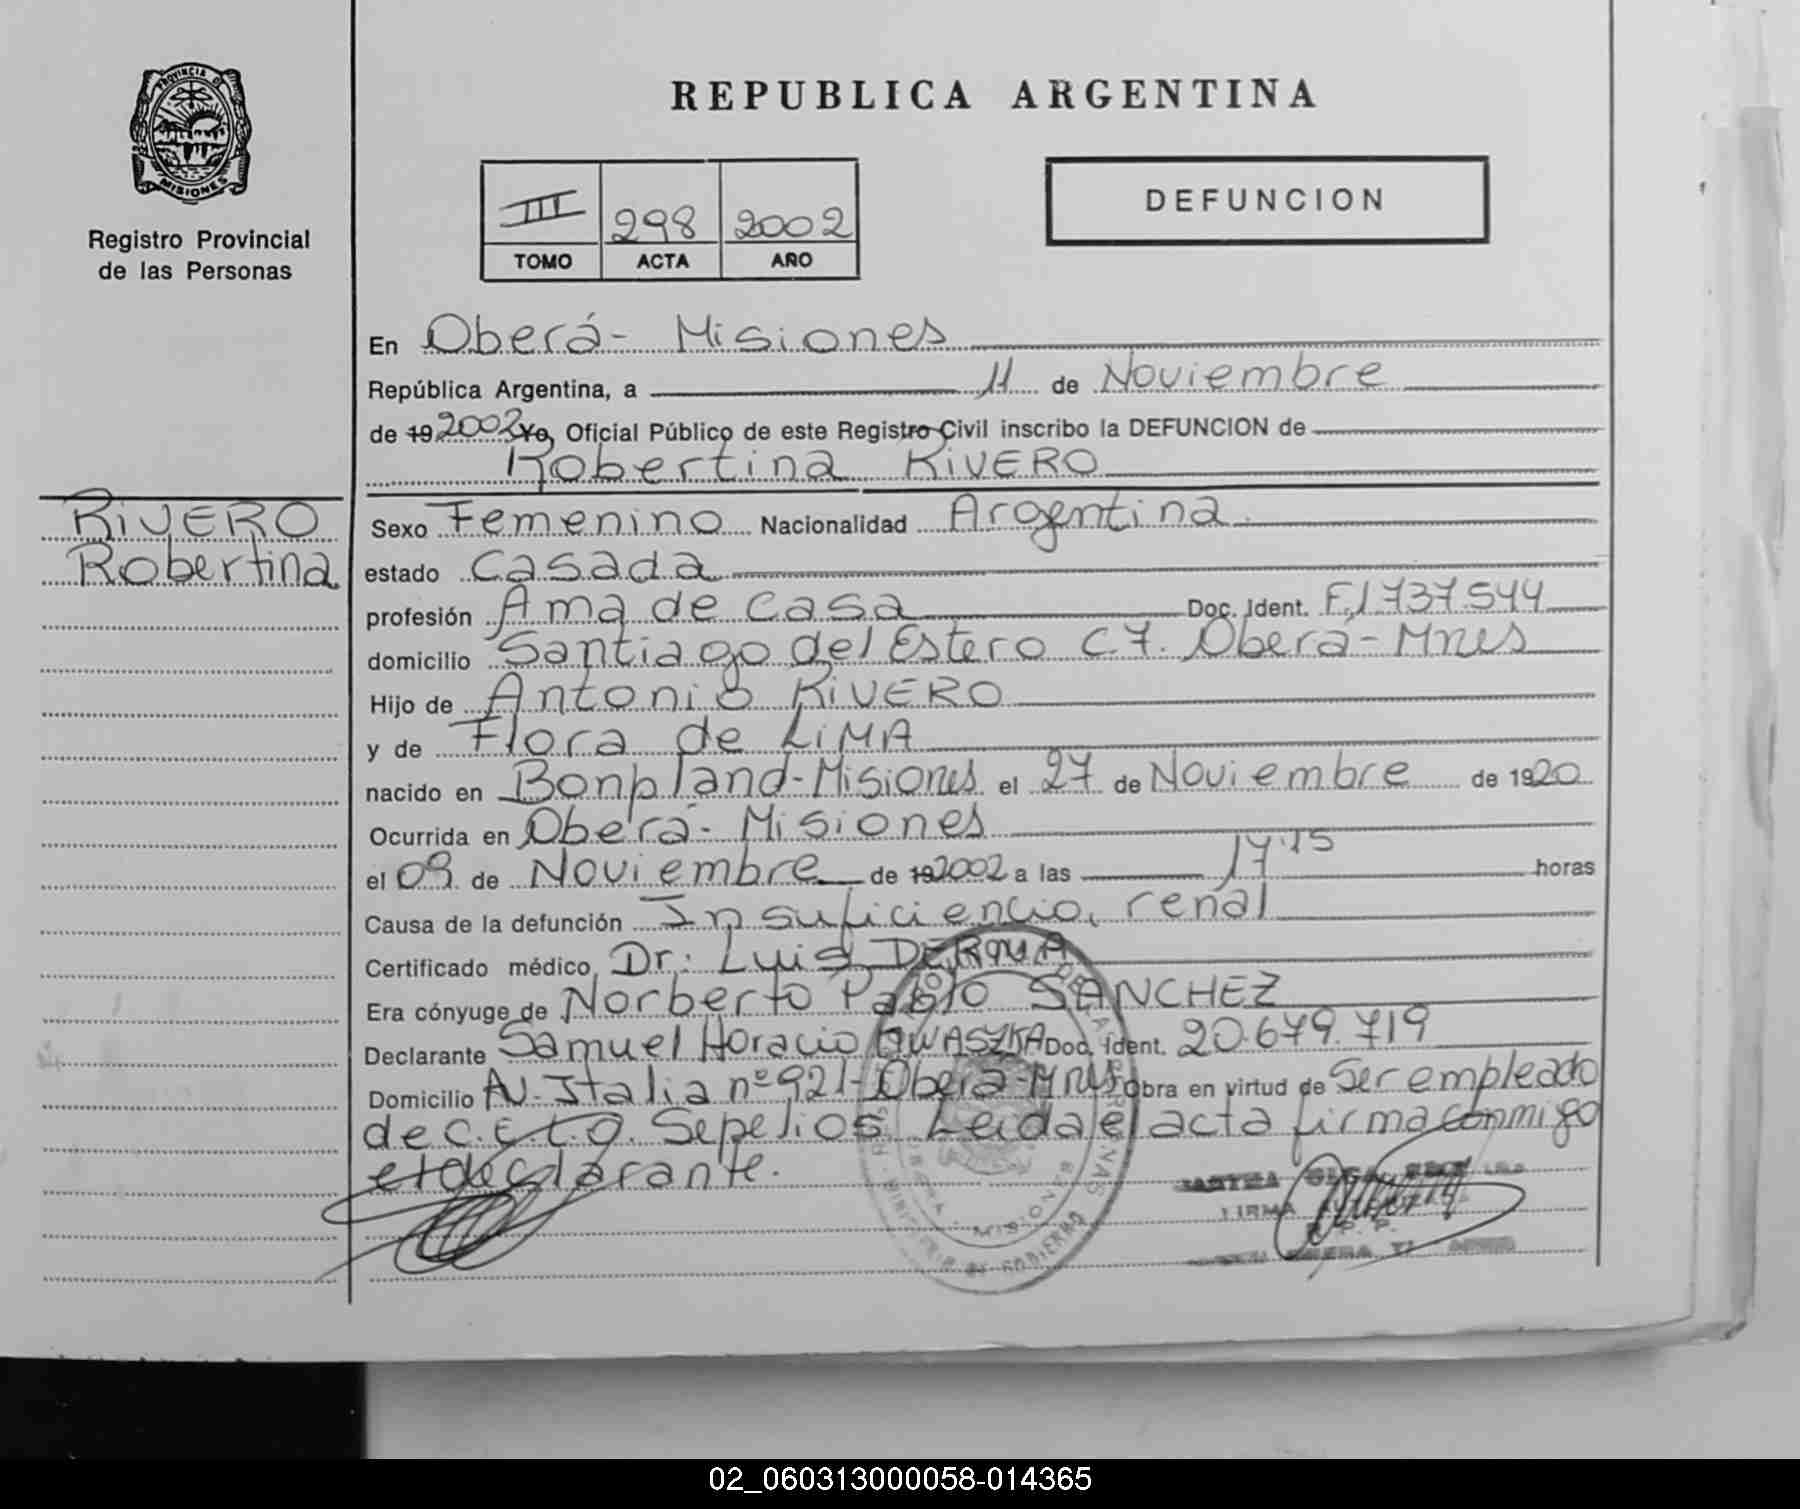 PROVINCIA D
MISIONES
Registro Provincial
de las Personas
REPUBLICA ARGENTINA
III 298 2002
TOMO ACTA AÑO
DEFUNCION
En Oberá- Misiones
República Argentina, a 11 de Noviembre
de 19 2002 Yo, Oficial Público de este Registro Civil inscribo la DEFUNCION de
Robertina RIVERO
RIVERO
Robertina
Sexo Femenino Nacionalidad Argentina.
estado casada
profesión Ama de casa Doc. Ident. F.1737.544
domicilio Santiago del Estero C.7. Oberá-Mnes
Hijo de Antonio RIVERO
y de Flora de LIMA
nacido en Bonpland-Misiones el 27 de Noviembre de 1920
Ocurrida en Oberá- Misiones
el 09 de Noviembre de 19 2002 a las 17.15 horas
Causa de la defunción Insuficiencia renal
Certificado médico Dr: Luis DERQUA
Era cónyuge de Norberto Pablo SANCHEZ
Declarante Samuel Horacio Doc. Ident. 20.679.719
Domicilio Av. Italia nº 921-Oberá-Mnes obra en virtud de Ser empleado
de C.E.L.O. Sepelios Leida el acta firma conmigo
el declarante.
MISIONES
MINISTERIO DE GOBIERNO
FIRMA
02_060313000058-014365